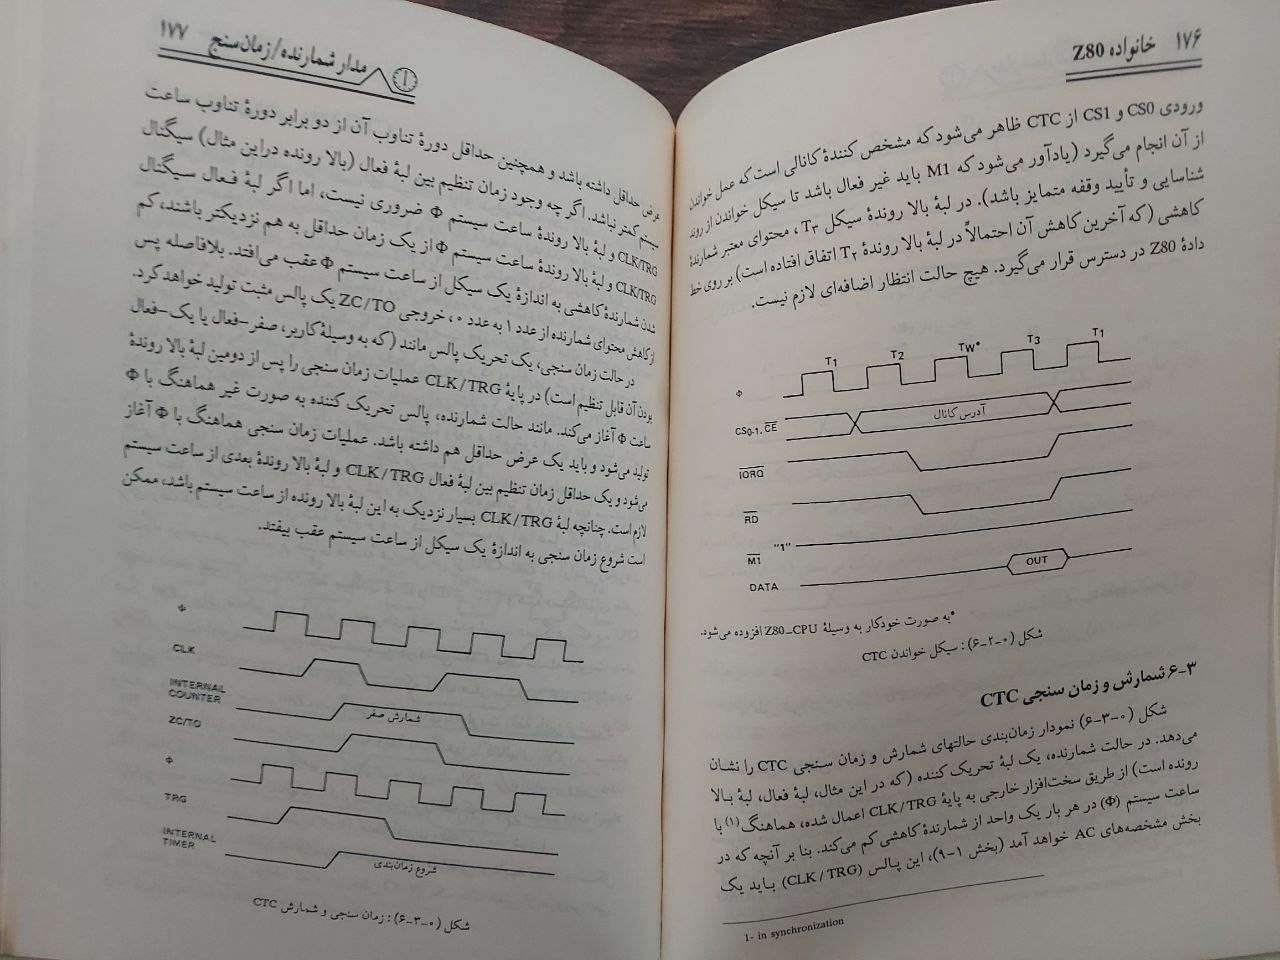 ۱۷۶ خانواده Z80
ورودی CS0 و CS1 از CTC ظاهر می‌شود که مشخص کنندهٔ کانالی است که عمل خواندن
از آن انجام می‌گیرد (یادآور می‌شود که M1 باید غیر فعال باشد تا سیکل خواندن از روند
شناسایی و تأیید وقفه متمایز باشد). در لبهٔ بالا روندهٔ سیکل T۳، محتوای معتبر شمارندهٔ
کاهشی (که آخرین کاهش آن احتمالاً در لبهٔ بالا روندهٔ T۲ اتفاق افتاده است) بر روی خط
دادهٔ Z80 در دسترس قرار می‌گیرد. هیچ حالت انتظار اضافه‌ای لازم نیست.
T1 T2 TW* T3 T1
Φ
CS0-1, CE آدرس کانال
IORQ
RD
M1 "1"
DATA OUT
*به صورت خودکار به وسیلهٔ Z80–CPU افزوده می‌شود.
شکل (۰–۲–۶) : سیکل خواندن CTC
۶–۳ شمارش و زمان سنجی CTC
شکل (۰–۳–۶) نمودار زمان‌بندی حالتهای شمارش و زمان سنجی CTC را نشان
می‌دهد. در حالت شمارنده، یک لبهٔ تحریک کننده (که در این مثال، لبهٔ فعال، لبهٔ بالا
رونده است) از طریق سخت‌افزار خارجی به پایهٔ CLK/TRG اعمال شده، هماهنگ(۱) با
ساعت سیستم (Φ) در هر بار یک واحد از شمارندهٔ کاهشی کم می‌کند. بنا بر آنچه که در
بخش مشخصه‌های AC خواهد آمد (بخش ۱–۹)، این پالس (CLK/TRG) باید یک
1- in synchronization
مدار شمارنده/زمان‌سنج ۱۷۷
عرض حداقل داشته باشد و همچنین حداقل دورهٔ تناوب آن از دو برابر دورهٔ تناوب ساعت
سیستم کمتر نباشد. اگر چه وجود زمان تنظیم بین لبهٔ فعال (بالا رونده دراین مثال) سیگنال
CLK/TRG و لبهٔ بالا روندهٔ ساعت سیستم Φ ضروری نیست، اما اگر لبهٔ فعال سیگنال
CLK/TRG و لبهٔ بالا روندهٔ ساعت سیستم Φ از یک زمان حداقل به هم نزدیکتر باشند، کم
شدن شمارندهٔ کاهشی به اندازهٔ یک سیکل از ساعت سیستم Φ عقب می‌افتد. بلافاصله پس
از کاهش محتوای شمارنده از عدد ۱ به عدد ۰، خروجی ZC/TO یک پالس مثبت تولید خواهد کرد.
در حالت زمان سنجی، یک تحریک پالس مانند (که به وسیلهٔ کاربر، صفر-فعال یا یک-فعال
بودن آن قابل تنظیم است) در پایهٔ CLK/TRG عملیات زمان سنجی را پس از دومین لبهٔ بالا روندهٔ
ساعت Φ آغاز می‌کند. مانند حالت شمارنده، پالس تحریک کننده به صورت غیر هماهنگ با Φ
تولید می‌شود و باید یک عرض حداقل هم داشته باشد. عملیات زمان سنجی هماهنگ با Φ آغاز
می‌شود و یک حداقل زمان تنظیم بین لبهٔ فعال CLK/TRG و لبهٔ بالا روندهٔ بعدی از ساعت سیستم
لازم است. چنانچه لبهٔ CLK/TRG بسیار نزدیک به این لبهٔ بالا رونده از ساعت سیستم باشد، ممکن
است شروع زمان سنجی به اندازهٔ یک سیکل از ساعت سیستم عقب بیفتد.
Φ
CLK
INTERNAL
COUNTER شمارش صفر
ZC/TO
Φ
TRG
INTERNAL
TIMER شروع زمان‌بندی
شکل (۰–۳–۶) : زمان سنجی و شمارش CTC